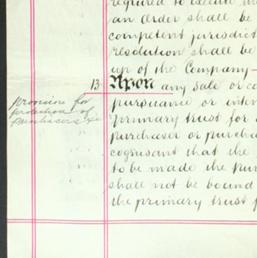 required to execute
an Order shall be
competent jurisdict
resolution shall be
up of the Company—
13 Upon any Sale or co
provision for
protection of
purchasers &c
pursuance or inten
primary trust for
purchaser or purcha
cognisant that the
to be made the pur
shall not be bound
the primary trust